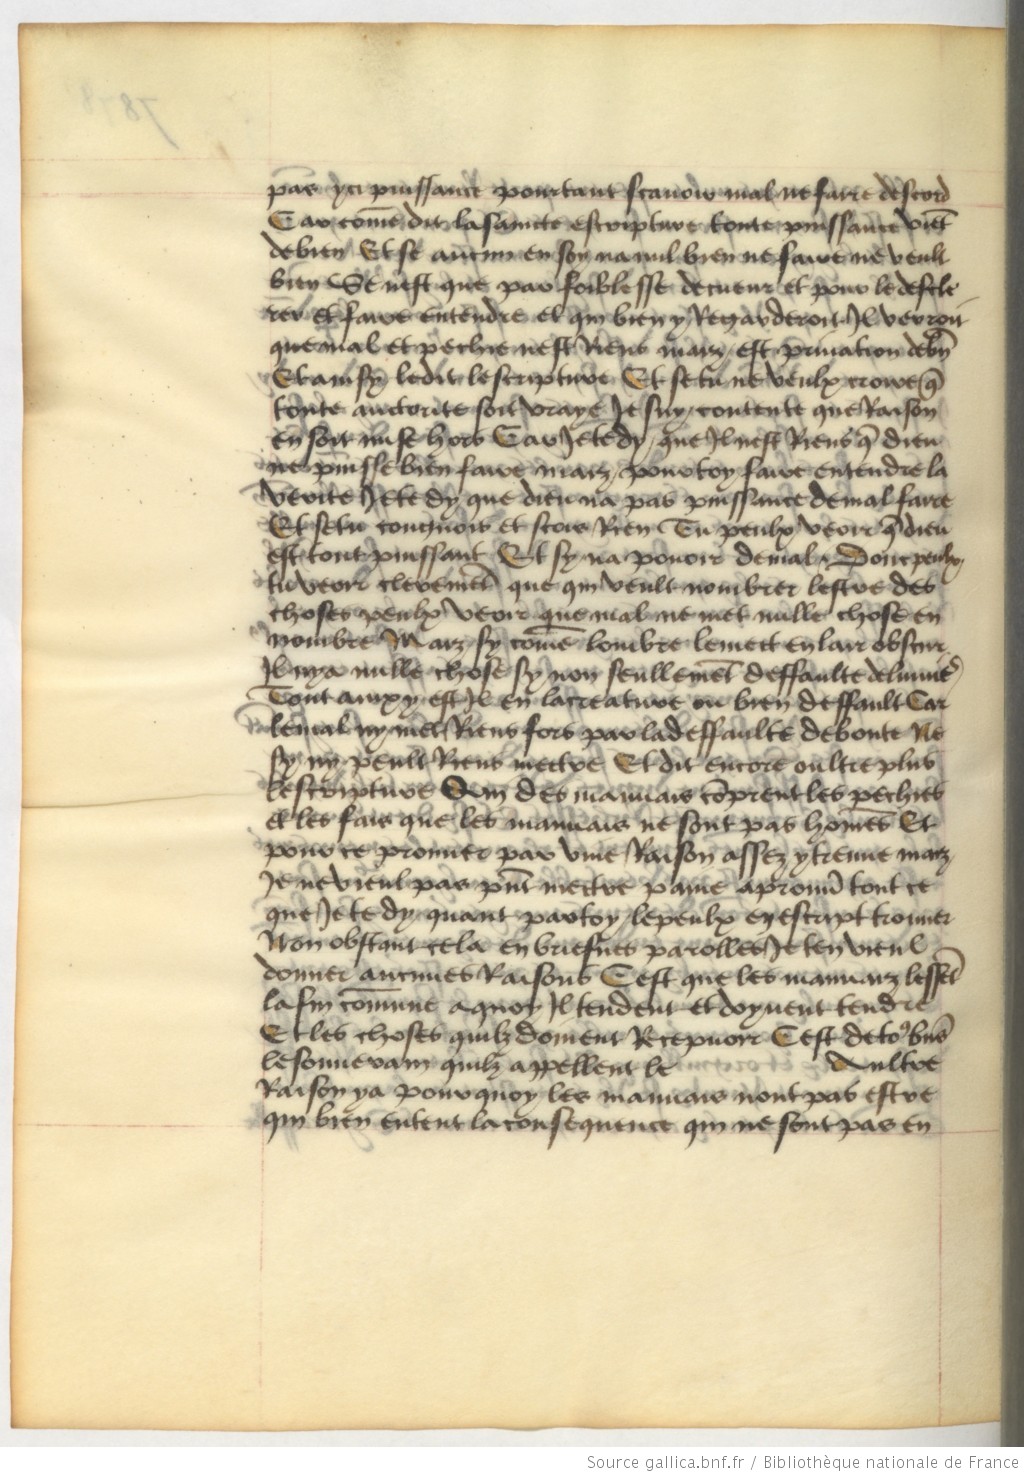 pas yci puissance pourtant scauoir mal ne faire descord
Car cōme dit la saincte escripture toute puissance viēt
de bien Et se aucun en soy na nul bien ne faire ne veult
bien Ce nest que par foiblesse de cueur et pour le descle
rer et faire entendre et qui bien y Regarderoit Il verroit
que mal et pechie nest Riens maiz est priuation de bn̄
Et ainsy le dit lescripture Et se tu ne veulx croire q̄
toute auctorite soit vraye Je suy contente que Raison
en soit mise hors Car Je te dy que Il nest Riens q̄ dieu
ne puisse bien faire maiz pour toy faire entendre la
verite Je te dy que dieu na pas puissance de mal faire
Et se tu congnois et scais Rien Tu peulx veoir q̄ dieu
est tout puissant Et sy na pouoir de mal Donc peulx
tu veoir cleremēt que qui veult nombrer lestre des
choses peulx veoir que mal ne met nulle chose en
nombre Maiz sy cōme lombre se mect en lair obscur
Il nya nulle chose sy non seullemēt deffaulte de lumie
Tout ainxy est Il en la creature ou bien deffault Car
le mal ny met Riens fors par la deffaulte de bonte Ne
sy ny peult Riens mectre Et dit encore oultre plus
lescripture Qui des mauuais cōprent les pechies
et les fais que les mauuais ne sont pas hōmes Et
pour ce prouuer par viue Raison assez y treuue maiz
Je ne vieul pas pn̄t mectre paine a prouu tout ce
que Je te dy quant par toy le peulx en escript trouuer
Non obstant cela en briefues parolles Je ten vieul
donner aucunes Raisons Cest que les mauuaiz lessēt
la fin cōmune a quoy Il tendent et doyuent tendre
Et les choses quilz doiuent Recepuoir Cest de to⁹ bn̄s
le souuerain quilz appellent le Aultre
Raison ya pourquoy les mauuais nont pas estre
qui bien entent la consequence qui ne sont pas en
Source gallica.bnf.fr / Bibliothèque nationale de France